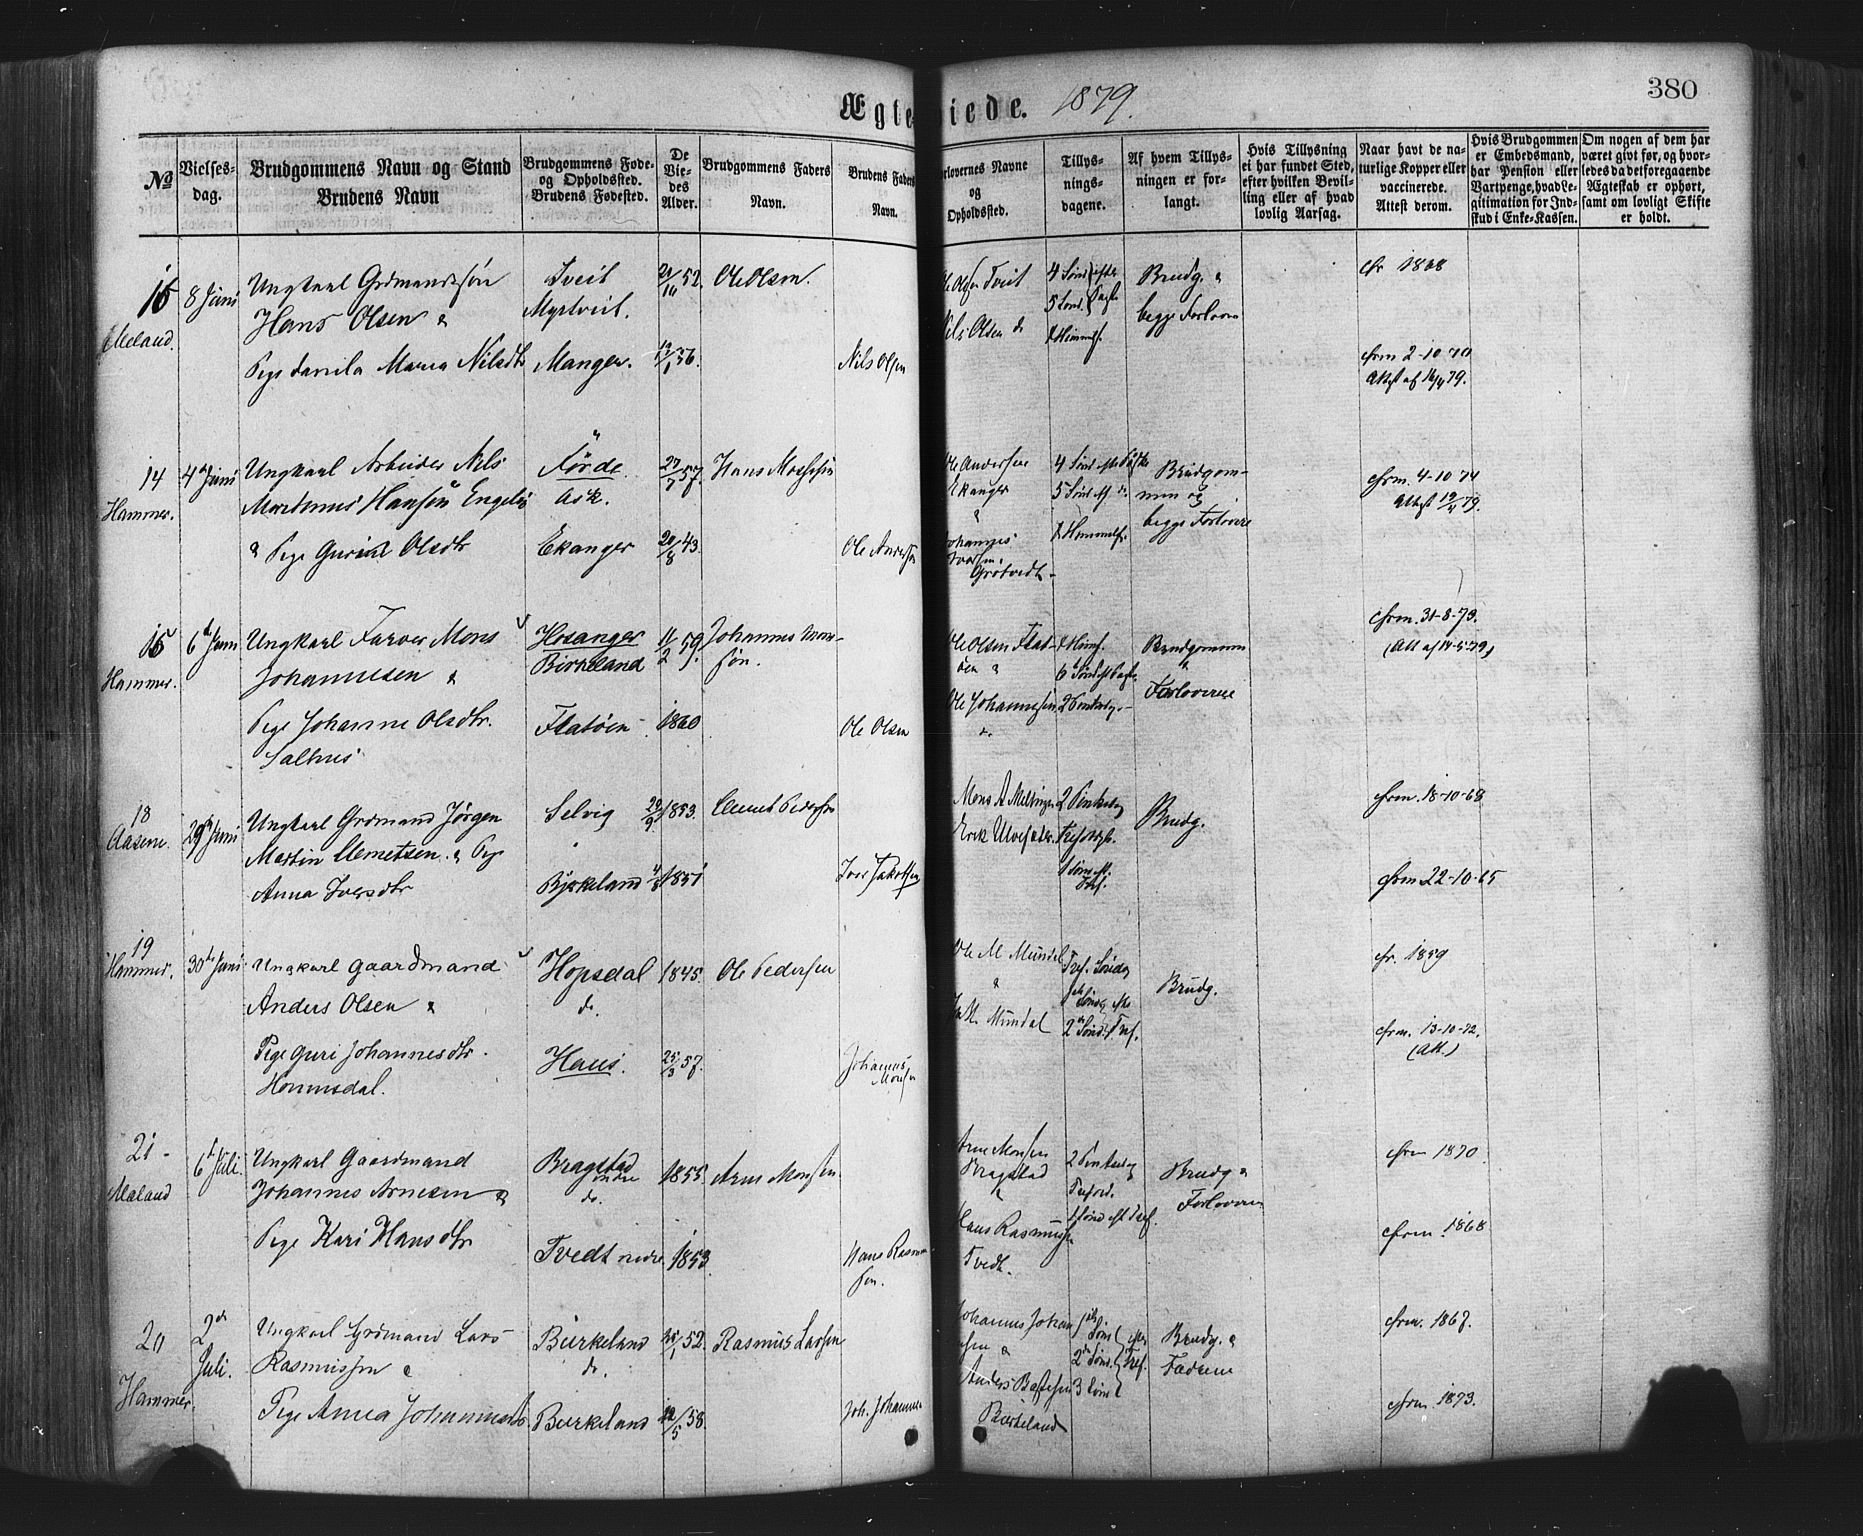 380
Ægte iede. 1879.
No
Vielses-
dag.
Brudgommens Navn og Stand
Brudens Navn
Brudgommens Føde-
og Opholdssted.
Brudens Fødested.
De
Vie-
des
Alder.
Brudgommens Faders
Navn.
Brudens Faders
Navn.
orlovernes Navne
og
Opholdssted.
Tillys-
nings-
dagene.
Af hvem Tillys-
ningen er for-
langt.
Hvis Tillysning
ei har fundet Sted,
efter hvilken Bevil-
ling eller af hvad
lovlig Aarsag.
Naar havt de na-
turlige Kopper eller
vaccinerede.
Attest derom.
Hvis Brudgommen
er Embedsmand,
har Pension eller
Vartpenge, hvad Le-
gitimation for Ind-
skud i Enke-Kassen.
Om nogen af dem har
været givt før, og hvor-
ledes da det foregaaende
Ægteskab er ophørt,
samt om lovligt Skifte
er holdt.
Meland.
8 Juni
Ungkarl Grdmandssøn
Hans Olsen &
Pige Maria Nilsdtr
Tveit
Myrtveit.
Manger.
52.
56.
Ole Olsen.
Nils Olsen
Olsen Tveit
Nils Olsen do
4 Sønd. efter
5 Sønd.
Brudg. &
begge Forlovere
cfrm 2-10-70
Attest af 16/4 79.
14
Hammer.
4de Juni
Ungkarl Arbeider Nils
Martinus Hansen
& Pige Olsdtr
Førde
Ask.
Ekanger
27/7 57.
20/8 43.
Hans
Ole Andersen
Ole Andersen
Ekanger
&
Johannes
Iversen
4 Sønd. efter Paaske
5 Sønd. ef. do.
Brudgom-
men og
begge Forlovere
cfrm. 4-10-74
Attest 79.
Hammer.
6te Juni
Ungkarl Farver Mons
Johannesen &
Pige Johanne Olsdtr.
Salhus
Hosanger
Birkeland
Flatøen
11/2 59.
1860
Johannes Mon-
søn.
Ole Olsen
Ole Olsen Flat-
øen &
Ole Johannessen
do.
Brudgommen
&
Forloverne
cfrm. 31-8-73.
(Att af 14-5-79)
18
Aasene.
29de Juni
Ungkarl Grdmand Jørgen
Martin Clemetsen & Pige
Anna Iversdtr
Selvig
Bjrkeland
1853.
1851
Clemet Pedersen
Iver Jakobsen
Mons A Mellingen
Erik
2 Pintsedag
Brudg.
cfrm. 18-10-68
cfrm 22-10-65
19
Hammer.
30te Juni
Ungkarl Gaardmand
Anders Olsen &
Pige Guri Johannesdtr.
Hommsdal.
Hopsdal
do.
Haus.
1845.
25/3 57.
Ole Pedersen
Johannes
Monsen
Ole M Mundal
&
Mundal
Tref. Søndag
1ste Sønd. efter
2den Sønd. Tref.
Brudg.
cfr. 1859
cfrm. 13-10-72.
(Att.)
21
Meland
6te Juli.
Ungkarl Gaardmand
Johannes Arnesen &
Pige Kari Hansdtr
Bragstad
indre
do.
Tvedt nedre
1855.
1853.
Arne Monsen
Hans Rasmus-
sen.
Arne Monsen
Bragstad
&
Hans Rasmussen
Tvedt.
2 Pintsedag
Treford.
1 Sønd. eft Tref.
Brudg &
Forlovere
cfrm 1870
cfrm. 1868
20
Hammer.
2den
Juli.
Ungkarl Grdmand Lars
Rasmussen &
Pige Anna Johannesd.
Birkeland
do.
Birkeland
52.
58.
Rasmus Larsen
Joh. Johannes
Johannes Johan
sen &
Anders
Birkeland
1ste Sønd
2den Sønd. efter
3 Sønd Tref.
Brudg. &
Fædrene
cfrm. 1867.
cfrm. 1873.